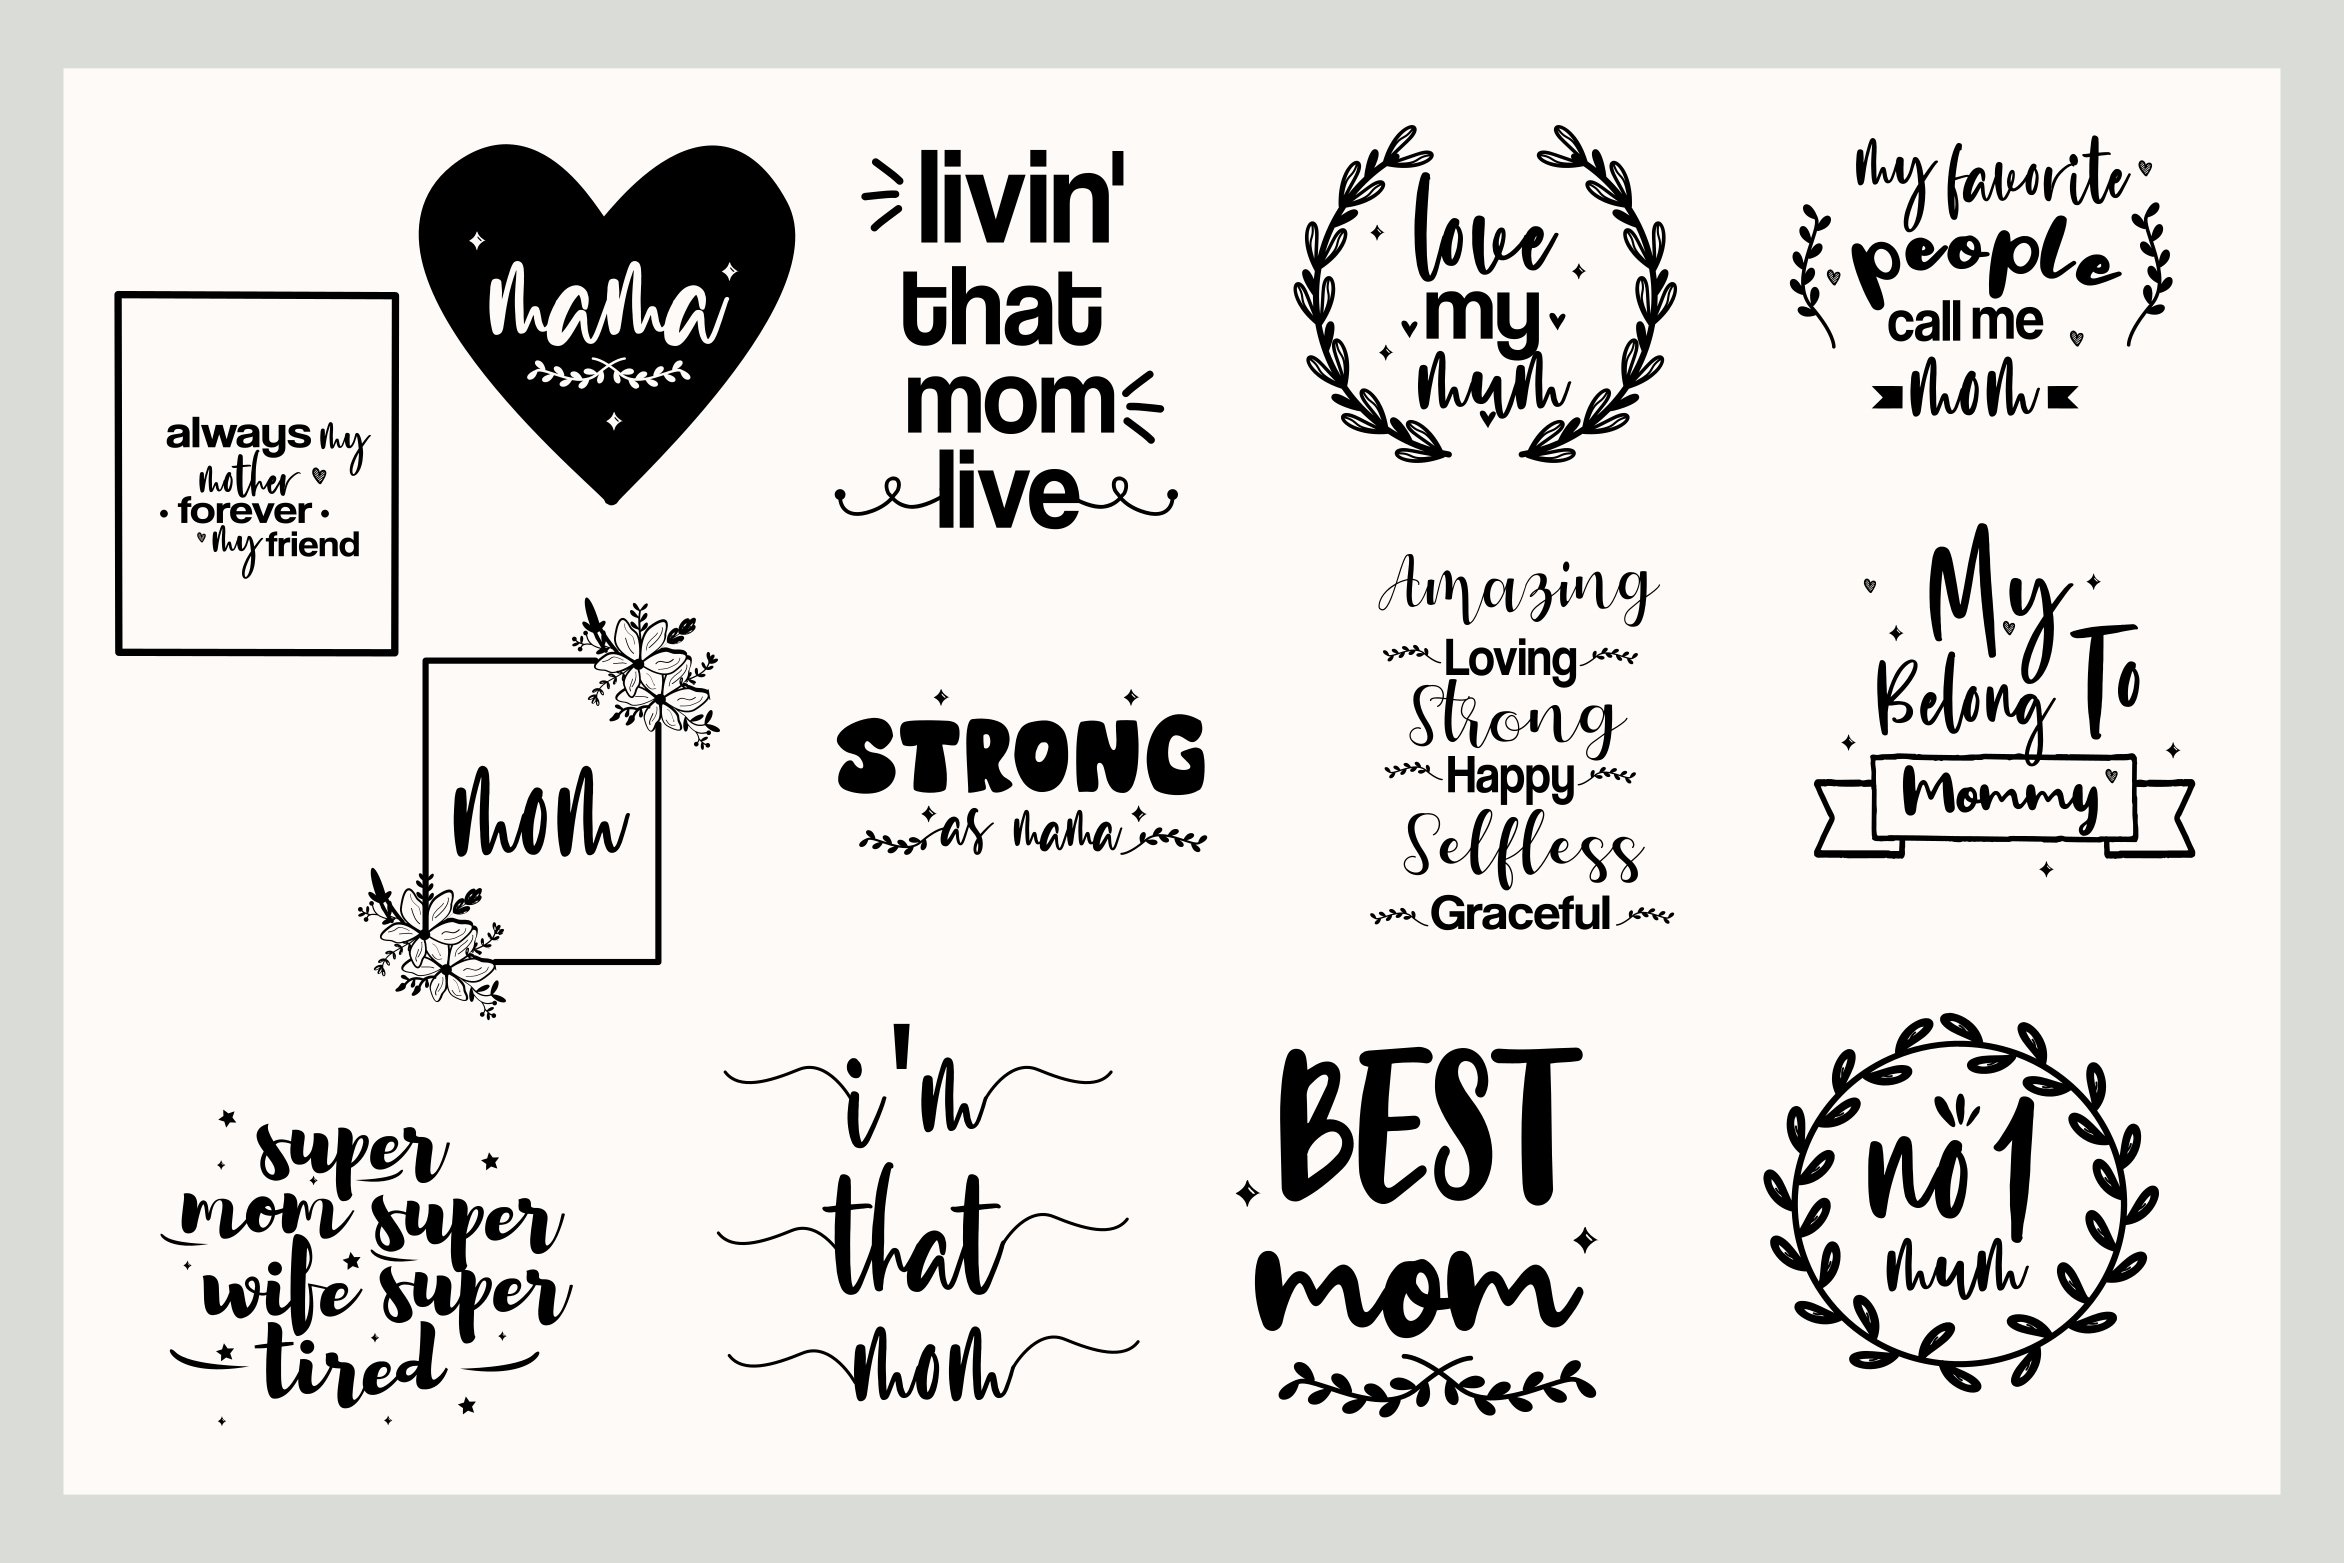 mama
livin'
that
mom
live
love
my
mum
my favorite
people
call me
mom
always my
mother
forever
my friend
Amazing
Loving
Strong
Happy
Selfless
Graceful
My
Belong To
Mommy
mom
STRONG
as mama
super
mom super
wife super
tired
i'm
that
mom
BEST
mom
no 1
mum